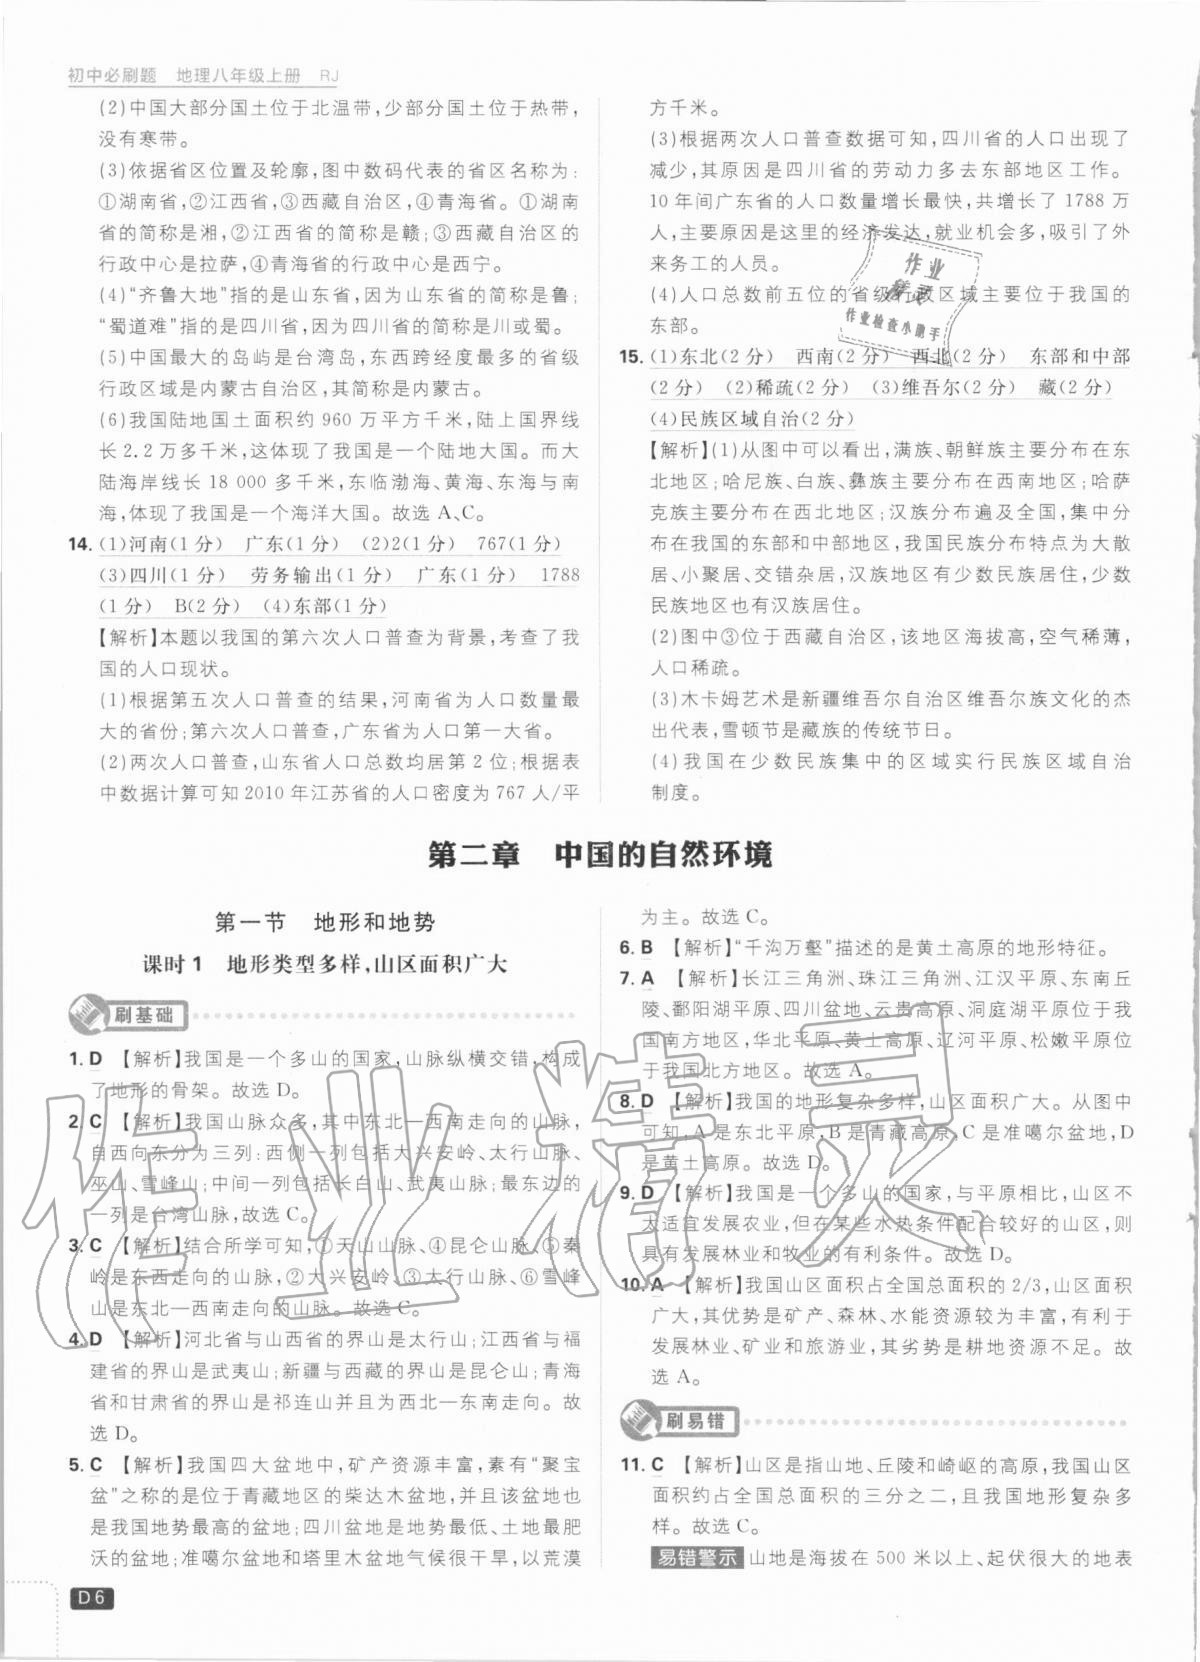 初中必刷题 地理八年级上册 RJ
(2)中国大部分国土位于北温带,少部分国土位于热带,
没有寒带。
(3)依据省区位置及轮廓,图中数码代表的省区名称为:
①湖南省,②江西省,③西藏自治区,④青海省。①湖南
省的简称是湘,②江西省的简称是赣;③西藏自治区的
行政中心是拉萨,④青海省的行政中心是西宁。
(4)“齐鲁大地”指的是山东省,因为山东省的简称是鲁;
“蜀道难”指的是四川省,因为四川省的简称是川或蜀。
(5)中国最大的岛屿是台湾岛,东西跨经度最多的省级
行政区域是内蒙古自治区,其简称是内蒙古。
(6)我国陆地国土面积约 960 万平方千米,陆上国界线
长 2.2 万多千米,这体现了我国是一个陆地大国。而大
陆海岸线长 18 000 多千米,东临渤海、黄海、东海与南
海,体现了我国是一个海洋大国。故选 A、C。
14. (1)河南(1 分) 广东(1 分) (2)2(1 分) 767(1 分)
(3)四川(1 分) 劳务输出(1 分) 广东(1 分) 1788
(1 分) B(2 分) (4)东部(1 分)
【解析】本题以我国的第六次人口普查为背景,考查了我
国的人口现状。
(1)根据第五次人口普查的结果,河南省为人口数量最
大的省份;第六次人口普查,广东省为人口第一大省。
(2)两次人口普查,山东省人口总数均居第 2 位;根据表
中数据计算可知 2010 年江苏省的人口密度为 767 人/平
方千米。
(3)根据两次人口普查数据可知,四川省的人口出现了
减少,其原因是四川省的劳动力多去东部地区工作。
10 年间广东省的人口数量增长最快,共增长了 1788 万
人,主要原因是这里的经济发达,就业机会多,吸引了外
来务工的人员。
(4)人口总数前五位的省级行政区域主要位于我国的
东部。
15. (1)东北(2 分) 西南(2 分) 西北(2 分) 东部和中部
(2 分) (2)稀疏(2 分) (3)维吾尔(2 分) 藏(2 分)
(4)民族区域自治(2 分)
【解析】(1)从图中可以看出,满族、朝鲜族主要分布在东
北地区;哈尼族、白族、彝族主要分布在西南地区;哈萨
克族主要分布在西北地区;汉族分布遍及全国,集中分
布在我国的东部和中部地区,我国民族分布特点为大散
居、小聚居、交错杂居,汉族地区有少数民族居住、少数
民族地区也有汉族居住。
(2)图中③位于西藏自治区,该地区海拔高,空气稀薄,
人口稀疏。
(3)木卡姆艺术是新疆维吾尔自治区维吾尔族文化的杰
出代表,雪顿节是藏族的传统节日。
(4)我国在少数民族集中的区域实行民族区域自治
制度。
作业
精灵
作业检查小助手
第二章 中国的自然环境
第一节 地形和地势
课时 1 地形类型多样,山区面积广大
刷基础
1. D 【解析】我国是一个多山的国家,山脉纵横交错,构成
了地形的骨架。故选 D。
2. C 【解析】我国山脉众多,其中东北—西南走向的山脉,
自西向东分为三列:西侧一列包括大兴安岭、太行山、
巫山、雪峰山;中间一列包括长白山、武夷山脉;最东边的
一列是台湾山脉,故选 C。
3. C 【解析】结合所学可知,①天山山脉、④昆仑山脉、⑤秦
岭是东西走向的山脉,②大兴安岭、③太行山脉、⑥雪峰
山是东北—西南走向的山脉。故选 C。
4. D 【解析】河北省与山西省的界山是太行山;江西省与福
建省的界山是武夷山;新疆与西藏的界山是昆仑山;青海
省和甘肃省的界山是祁连山并且为西北—东南走向。故
选 D。
5. C 【解析】我国四大盆地中,矿产资源丰富,素有“聚宝
盆”之称的是位于青藏地区的柴达木盆地,并且该盆地也
是我国地势最高的盆地;四川盆地是地势最低、土地最肥
沃的盆地;准噶尔盆地和塔里木盆地气候很干旱,以荒漠
为主。故选 C。
6. B 【解析】“千沟万壑”描述的是黄土高原的地形特征。
7. A 【解析】长江三角洲、珠江三角洲、江汉平原、东南丘
陵、鄱阳湖平原、四川盆地、云贵高原、洞庭湖平原位于我
国南方地区,华北平原、黄土高原、辽河平原、松嫩平原位
于我国北方地区。故选 A。
8. D 【解析】我国的地形复杂多样,山区面积广大。从图中
可知,A 是东北平原,B 是青藏高原,C 是准噶尔盆地,D
是黄土高原。故选 D。
9. D 【解析】我国是一个多山的国家,与平原相比,山区不
太适宜发展农业,但在某些水热条件配合较好的山区,则
具有发展林业和牧业的有利条件。故选 D。
10. A 【解析】我国山区面积占全国总面积的 2/3,山区面积
广大,其优势是矿产、森林、水能资源较为丰富,有利于
发展林业、矿业和旅游业,其劣势是耕地资源不足。故
选 A。
刷易错
11. C 【解析】山区是指山地、丘陵和崎岖的高原,我国山区
面积约占全国总面积的三分之二,且我国地形复杂多
样。故选 C。
易错警示 山地是海拔在 500 米以上、起伏很大的地表
D6
作业精灵